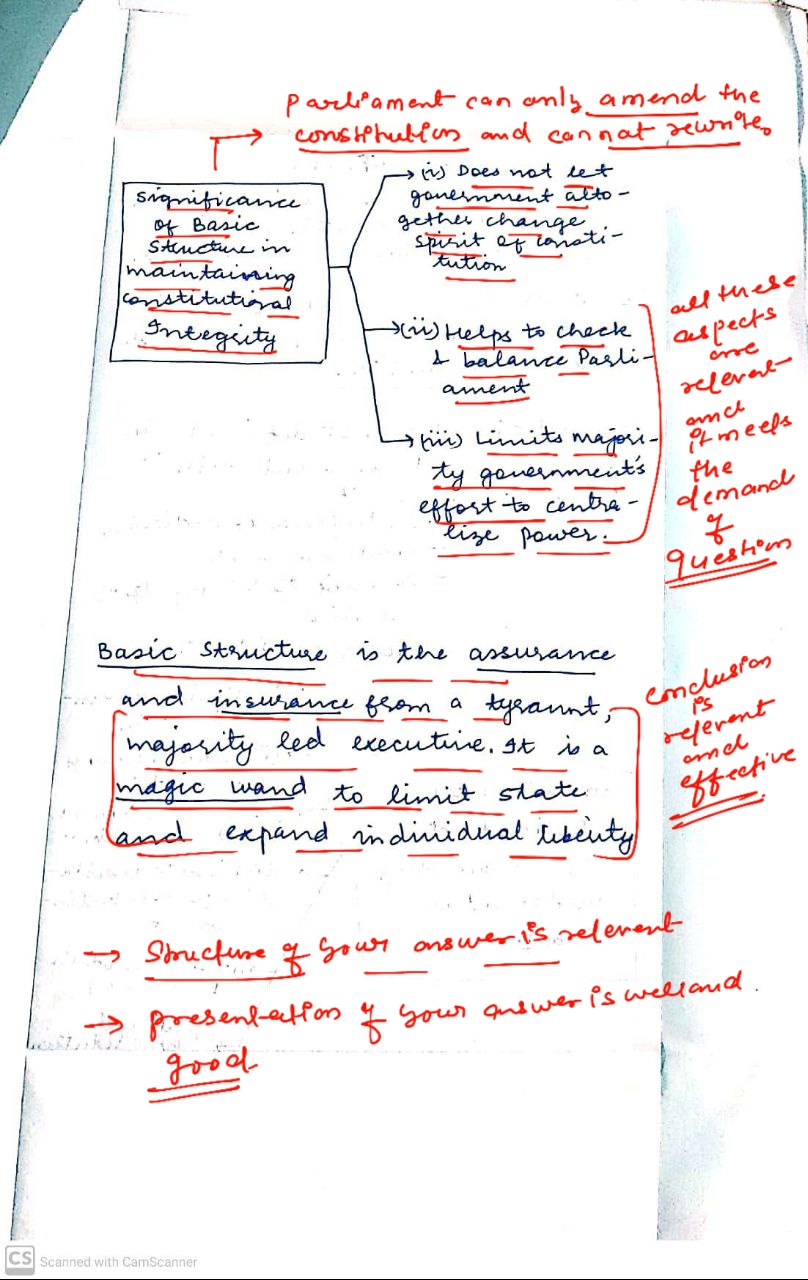 Parliament can only amend the
constitution and cannot rewrite.
Significance
of Basic
Structure in
maintaining
constitutional
Integrity
(i) Does not let
government alto-
gether change
spirit of consti-
tution
(ii) Helps to check
& balance Parli-
ament
(iii) Limits majori-
ty government's
effort to centra-
lize power.
all these
aspects
are
relevant
and
it meets
the
demand
of
question
Basic Structure is the assurance
and insurance from a tyrannt,
majority led executive. It is a
magic wand to limit state
and expand individual liberty
conclusion
is
relevant
and
effective
→ Structure of your answer is relevant
→ presentation of your answer is well and
good
CS Scanned with CamScanner